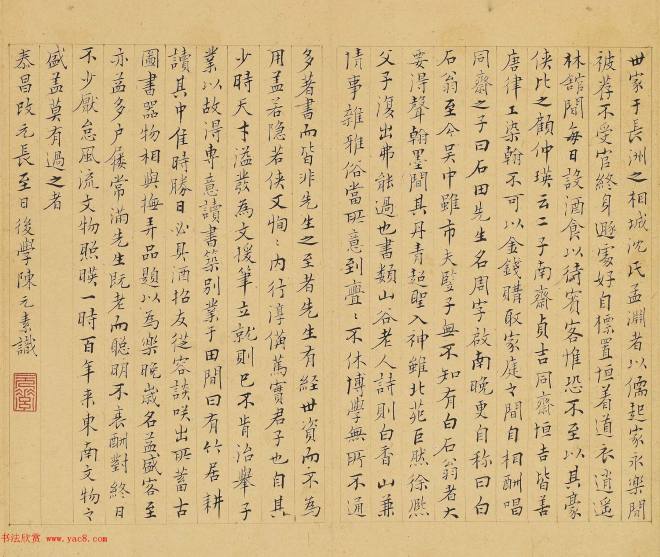 世家于長洲之相城沈氏孟淵者以儒起家永樂間
被荐不受官終身遯家好自標置恒着道衣逍遥
林舘間每日設酒食以待賓客惟恐不至以其豪
俠比之顧仲瑛云二子南齋貞吉同齋恒吉皆善
唐律工染翰不可以金錢購取家庭之間自相酬唱
同齋之子曰石田先生名周字啟南晚更自称曰白
石翁至今吳中雖市夫豎子無不知有白石翁者大
要得聲翰墨間其丹青超聖入神雖北苑巨然徐熙
父子復出弗能過也書類山谷老人詩則白香山兼
情事雜雅俗當所意到亹〻不休博學無所不通
多著書而皆非先生之至者先生有經世資而不為
用盖若隐若俠文恂〻内行淳備篤實君子也自其
少時天才溢發為文援筆立就則已不肯治舉子
業以故得專意讀書築别業于田間曰有竹居耕
讀其中佳時勝日必具酒招友從容談咲出所蓄古
圖書器物相與撫弄品題以為樂晚歲名益盛客至
亦益多户屨常滿先生既老而聰明不衰酬對終日
不少厭怠風流文物照暎一時百年来東南文物之
盛盖莫有過之者
泰昌改元長至日後學陳元素識
书法欣赏 www.yac8.com